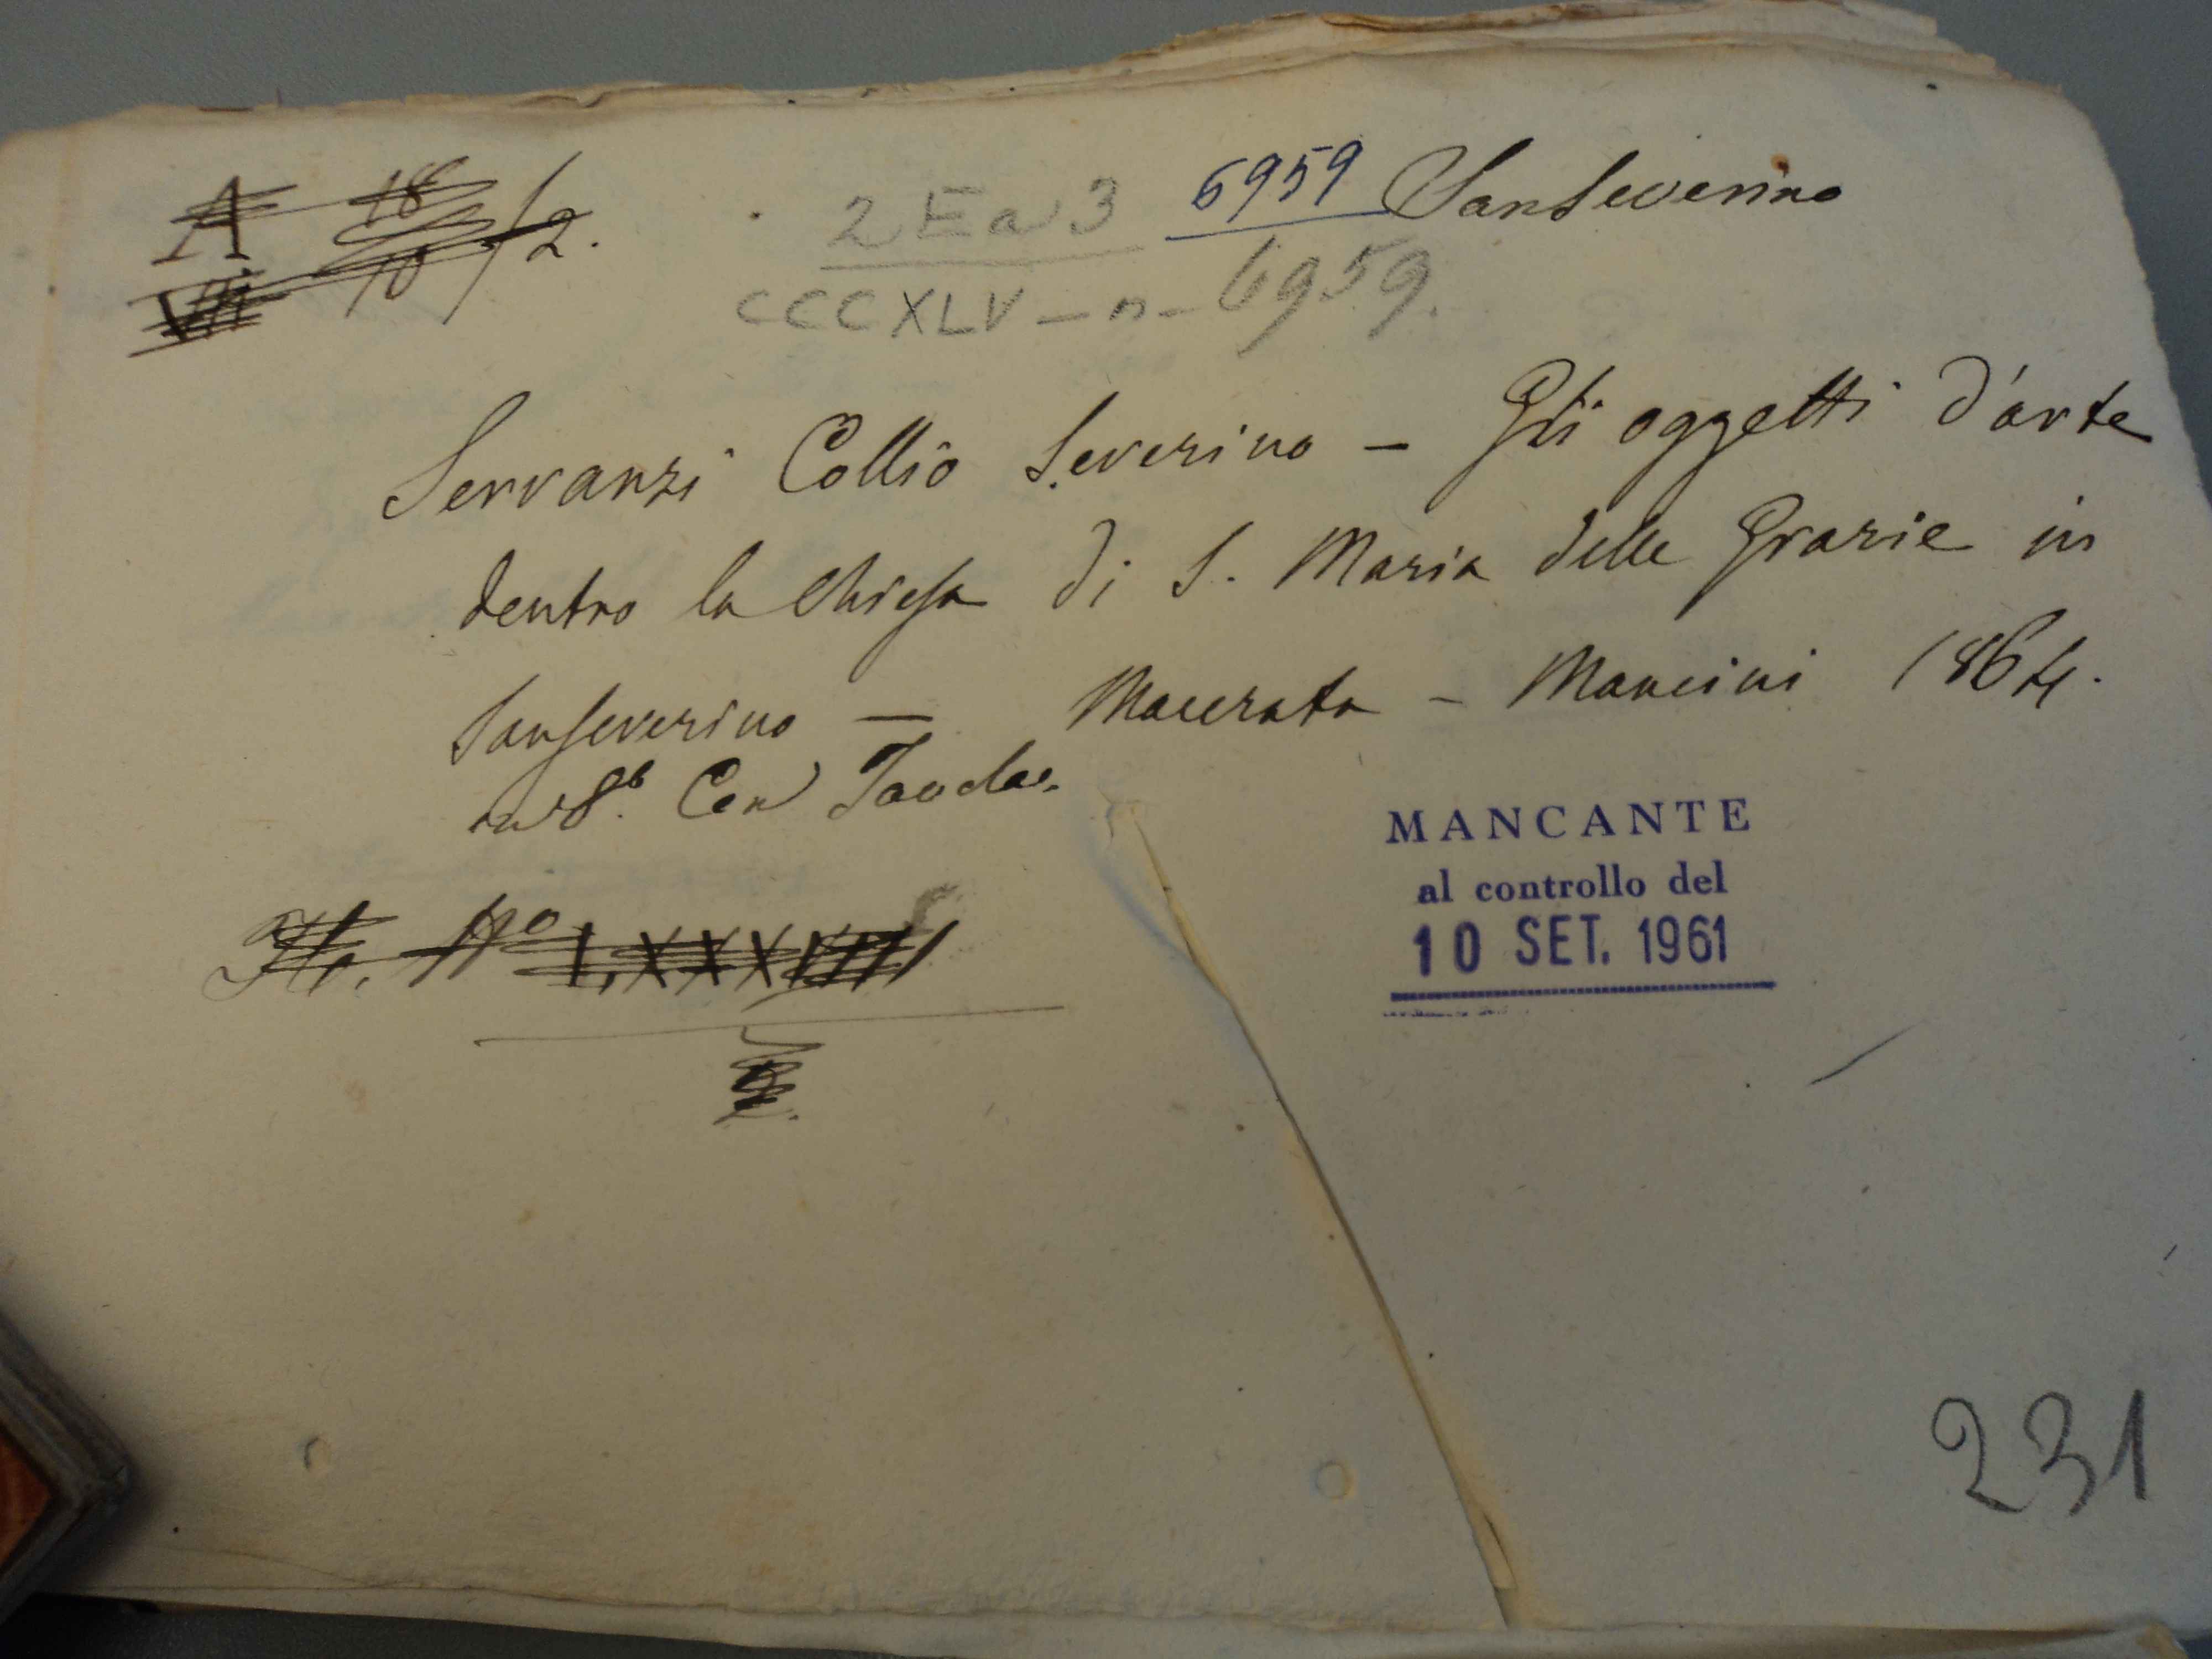 A 18
VII 10 / 2.
2 Ea 3 6959 Sanseverino
CCCXLV – n – 6959.
Servanzi Collio Severino – Gli oggetti d'arte
dentro la Chiesa di S. Maria delle Grazie in
Sanseverino – Macerata – Mancini 1864.
in 8º. Con Tavola.
MANCANTE
al controllo del
10 SET. 1961
Nº LXXXVIIII
231